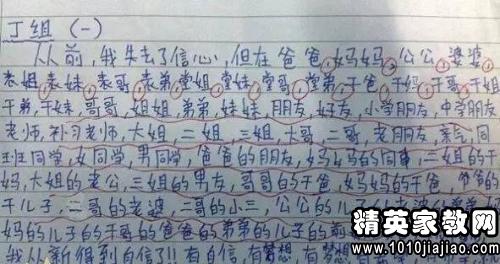 丁组 (一)
从前,我失去了信心,但在爸爸,妈妈,公公,婆婆,
表姐,表妹,表哥,表弟,堂姐,堂妹,堂哥,堂弟,干爸,干妈,干哥,干姐
干弟,干妹,哥哥,姐姐,弟弟,妹妹,朋友,好友,小学朋友,中学朋友
老师,补习老师,大姐,二姐,三姐,大哥,二哥,老朋友,亲戚,同
班同学,女同学,男同学,爸爸的朋友,妈妈的同事,二姐的干
妈,大姐的老公,三姐的男友,哥哥的干爸,妈妈的干爸,爷爷的
干儿子,二哥的老婆,二哥的小三,公公的儿子
妈的儿子的干哥的爸爸的弟弟的儿子的前
我从新得到自信了!!有自信,有梦想
精英家教网
www.1010jiajiao.com